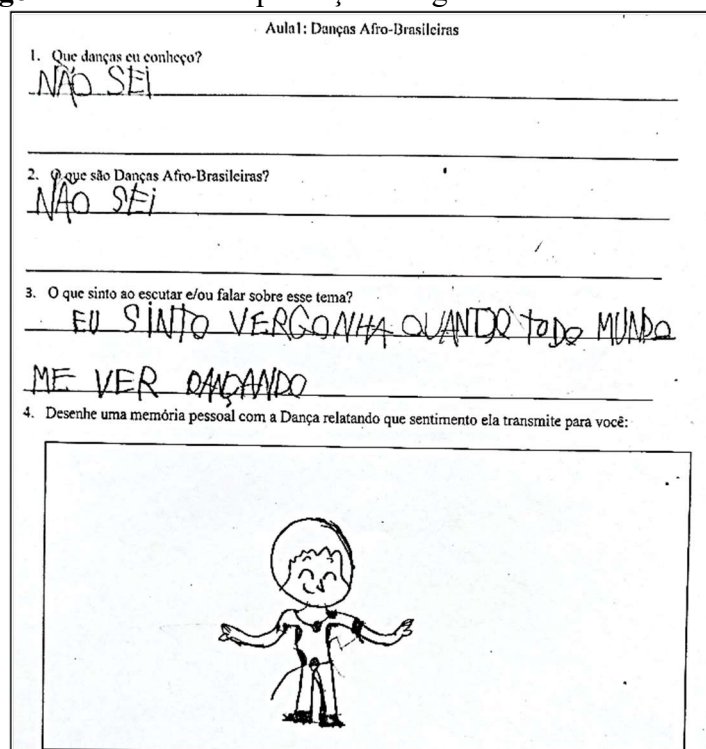 Aula1: Danças Afro-Brasileiras
1. Que danças eu conheço?
NÃO SEI
2. O que são Danças Afro-Brasileiras?
NÃO SEI
3. O que sinto ao escutar e/ou falar sobre esse tema?
EU SINTO VERGONHA QUANTDO TODO MUNDO
ME VER DANÇANDO
4. Desenhe uma memória pessoal com a Dança relatando que sentimento ela transmite para você: